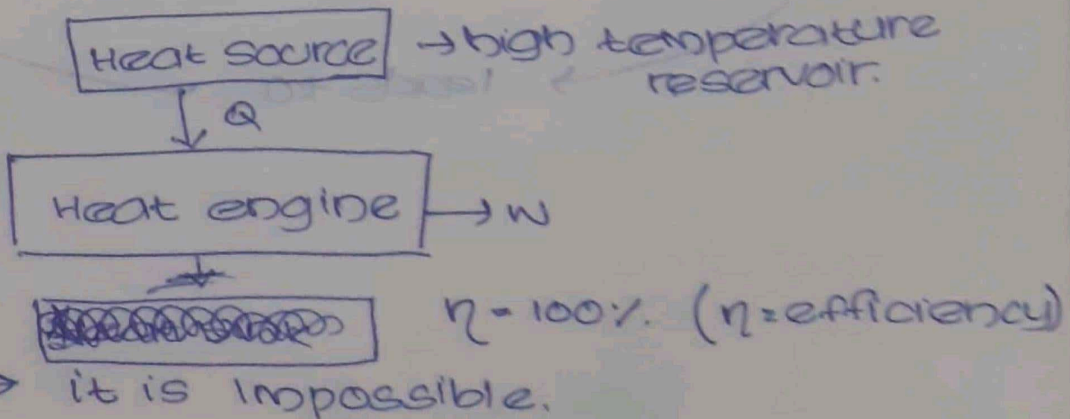 Heat source → high temperature
reservoir.
↓ Q
Heat engine → W
η = 100%. (η = efficiency)
it is impossible.